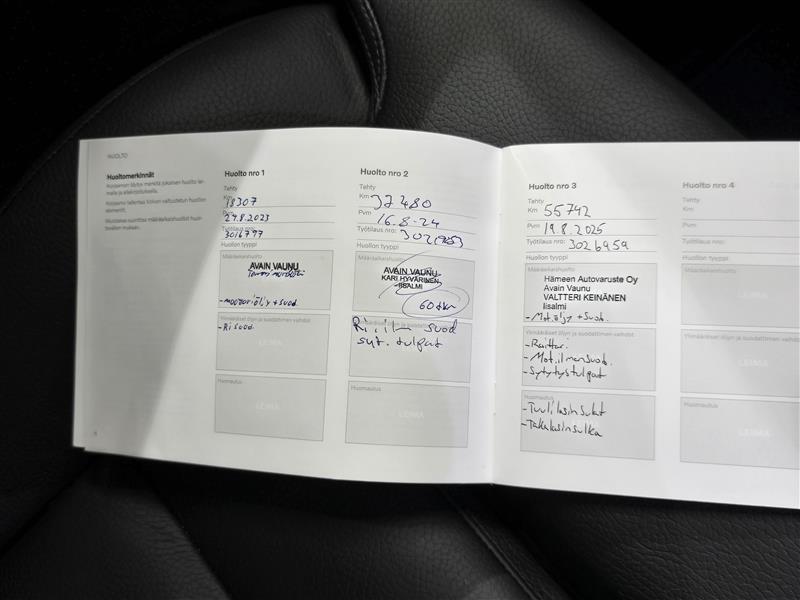 HUOLTO
Huoltomerkinnät
Huolto nro 1
Tehty
Km 18307
Pvm 29.8.2023
Työtilaus nro:
3016797
Huollon tyyppi
Määräaikaishuolto
AVAIN VAUNU
-moottoriöljy+suod.
Ylimääräiset öljyn ja suodattimen vaihdot
-Ri suod.
LEIMA
Huomautus
LEIMA
Huolto nro 2
Tehty
Km 37480
Pvm 16.8-24
Työtilaus nro:
Huollon tyyppi
Määräaikaishuolto
AVAIN VAUNU
KARI HYVÄRINEN
IISALMI
60 tkm
Ylimääräiset öljyn ja suodattimen vaihdot
suod
syt. tulpat
Huomautus
LEIMA
Huolto nro 3
Tehty
Km 55742
Pvm 19.8.2025
Työtilaus nro: 3026959
Huollon tyyppi
Määräaikaishuolto
Hämeen Autovaruste Oy
Avain Vaunu
VALTTERI KEINÄNEN
Iisalmi
-Mot.öljy +Suod.
Ylimääräiset öljyn ja suodattimen vaihdot
-Raittari.
-Mot.ilmansuod.
-Sytytystulpat
Huomautus
-Tuulilasinsulat
-Takalasinsulka
Huolto nro 4
Tehty
Km
Pvm
Työtilaus nro:
Huollon tyyppi
Määräaikaishuolto
LEIMA
Ylimääräiset öljyn ja suodattimen vaihdot
LEIMA
Huomautus
LEIMA